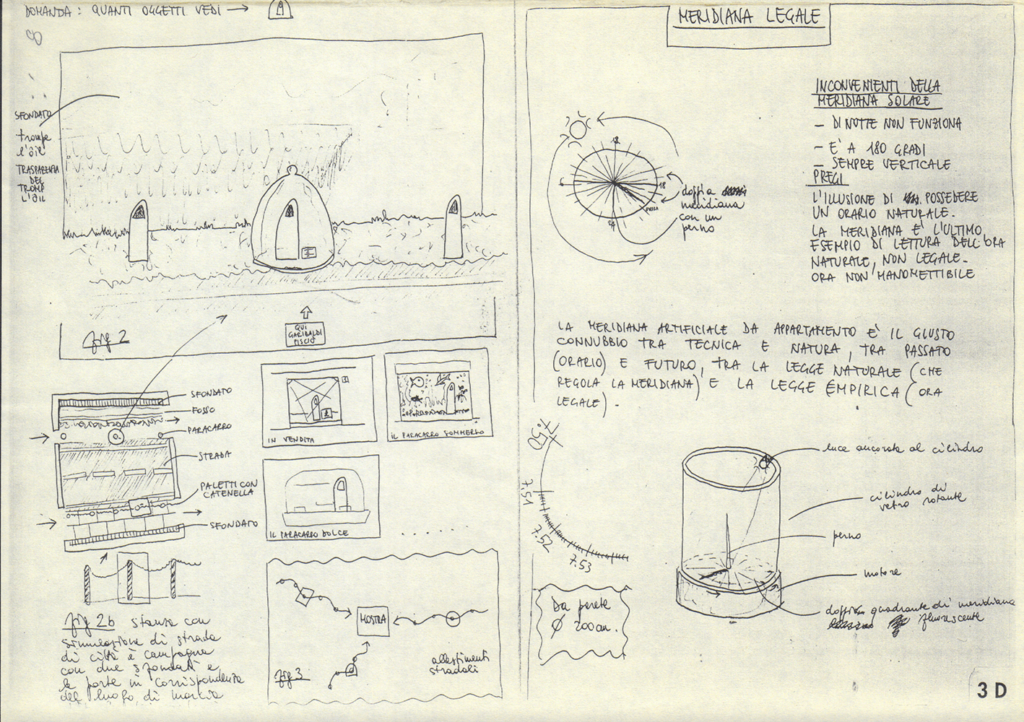 DOMANDA: QUANTI OGGETTI VEDI →
SFONDATO
trompe
l'œil
TRASPARENZA
DEL
TROMPE
L'ŒIL
fig 2
QUI
GARIBALDI
PISCIÒ
SFONDATO
FOSSO
PARACARRO
STRADA
PALETTI CON
CATENELLA
SFONDATO
IN VENDITA
IL PARACARRO SOMMERSO
IL PARACARRO DOLCE
fig 2b stanza con
simulazione di strada
di città e campagna
con due sfondati e
le porte in corrispondenza
del luogo di marcia
MOSTRA
fig 3
allestimenti
stradali
MERIDIANA LEGALE
INCONVENIENTI DELLA
MERIDIANA SOLARE
- DI NOTTE NON FUNZIONA
- E' A 180 GRADI
- SEMPRE VERTICALE
PREGI
L'ILLUSIONE DI POSSEDERE
UN ORARIO NATURALE.
LA MERIDIANA E' L'ULTIMO
ESEMPIO DI LETTURA DELL'ORA
NATURALE, NON LEGALE.
ORA NON MANOMETTIBILE
12
18
doppia
meridiana
con un
perno
LA MERIDIANA ARTIFICIALE DA APPARTAMENTO E' IL GIUSTO
CONNUBBIO TRA TECNICA E NATURA, TRA PASSATO
(ORARIO) E FUTURO, TRA LA LEGGE NATURALE (CHE
REGOLA LA MERIDIANA) E LA LEGGE EMPIRICA (ORA
LEGALE).
7.50
7.51
7.52
7.53
Da parete
Ø 200 cm.
luce ancorata al cilindro
cilindro di
vetro rotante
perno
motore
doppio quadrante di meridiana
fluorescente
3 D